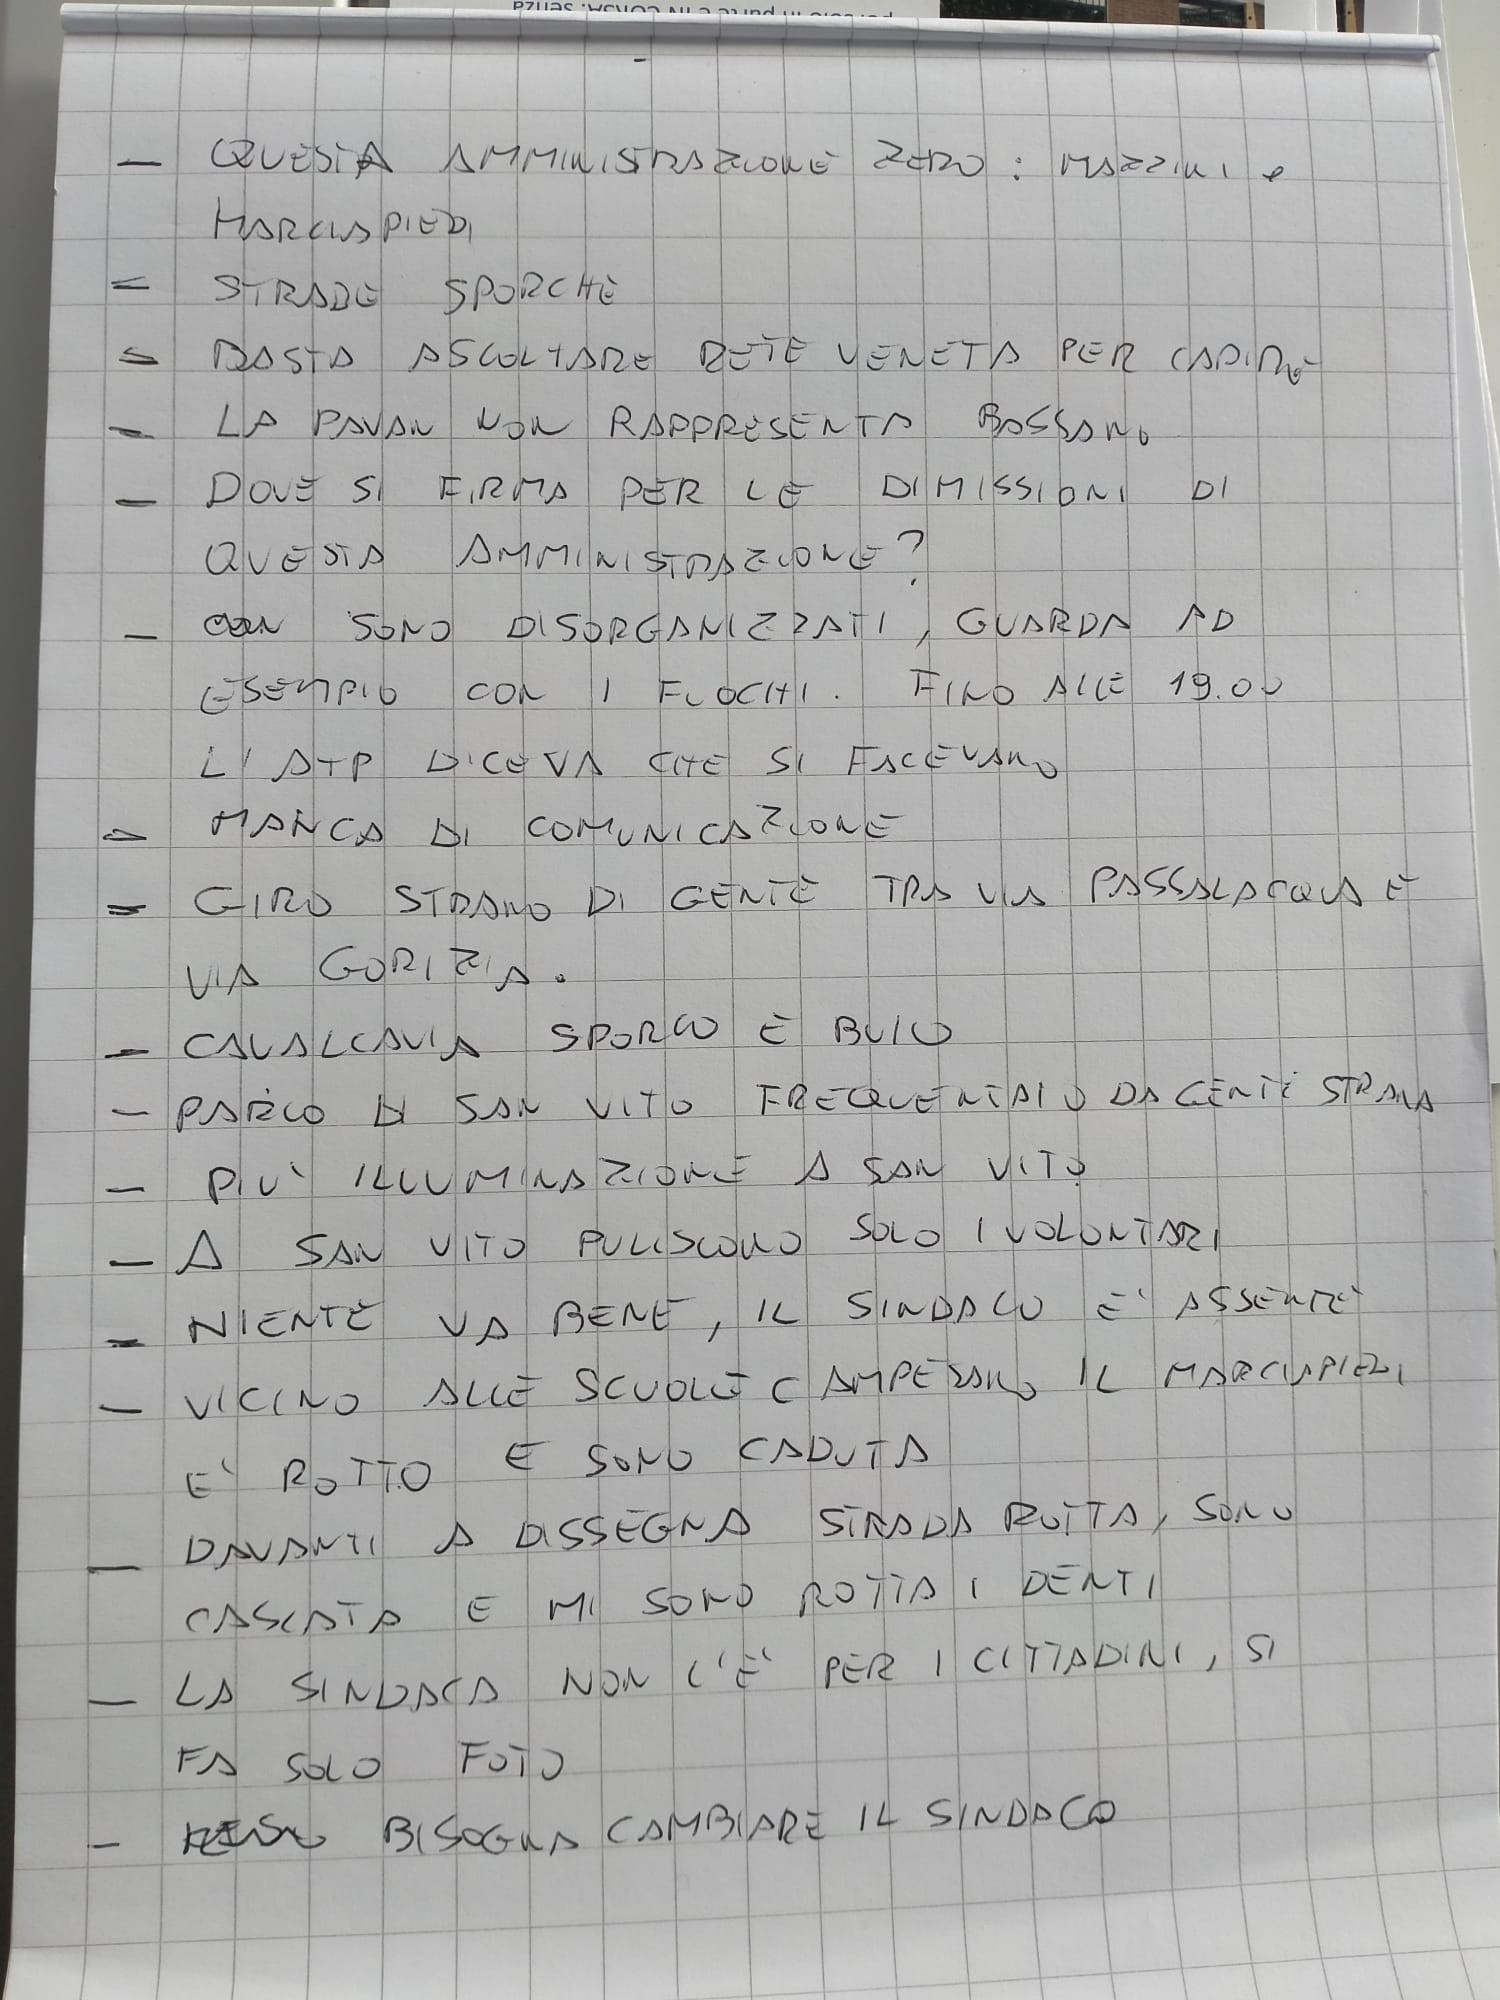 per solo in parte e IN CORSA: senza
- QUESTA AMMINISTRAZIONE ZERO: MAZZINI e
MARCIAPIEDI
- STRADE SPORCHE
- BASTA ASCOLTARE RETE VENETA PER CAPIRE
- LA PAVAN NON RAPPRESENTA BASSANO
- DOVE SI FIRMA PER LE DIMISSIONI DI
QUESTA AMMINISTRAZIONE?
- SONO DISORGANIZZATI, GUARDA AD
ESEMPIO CON I FUOCHI. FINO ALLE 19.00
L'ATP DICEVA CHE SI FACEVANO
- MANCA DI COMUNICAZIONE
- GIRO STRANO DI GENTE TRA VIA PASSALACQUA E
VIA GORIZIA.
- CAVALCAVIA SPORCO E BUIO
- PARCO DI SAN VITO FREQUENTATO DA GENTE STRANA
- PIU' ILLUMINAZIONE A SAN VITO
- A SAN VITO PULISCONO SOLO I VOLONTARI
- NIENTE VA BENE, IL SINDACO E' ASSENTE
- VICINO ALLE SCUOLE CAMPESANO IL MARCIAPIEDI
E' ROTTO E SONO CADUTA
- DAVANTI A DISSEGNA STRADA ROTTA, SONO
CASCATA E MI SONO ROTTA I DENTI
- LA SINDACA NON C'E' PER I CITTADINI, SI
FA SOLO FOTO
- BISOGNA CAMBIARE IL SINDACO